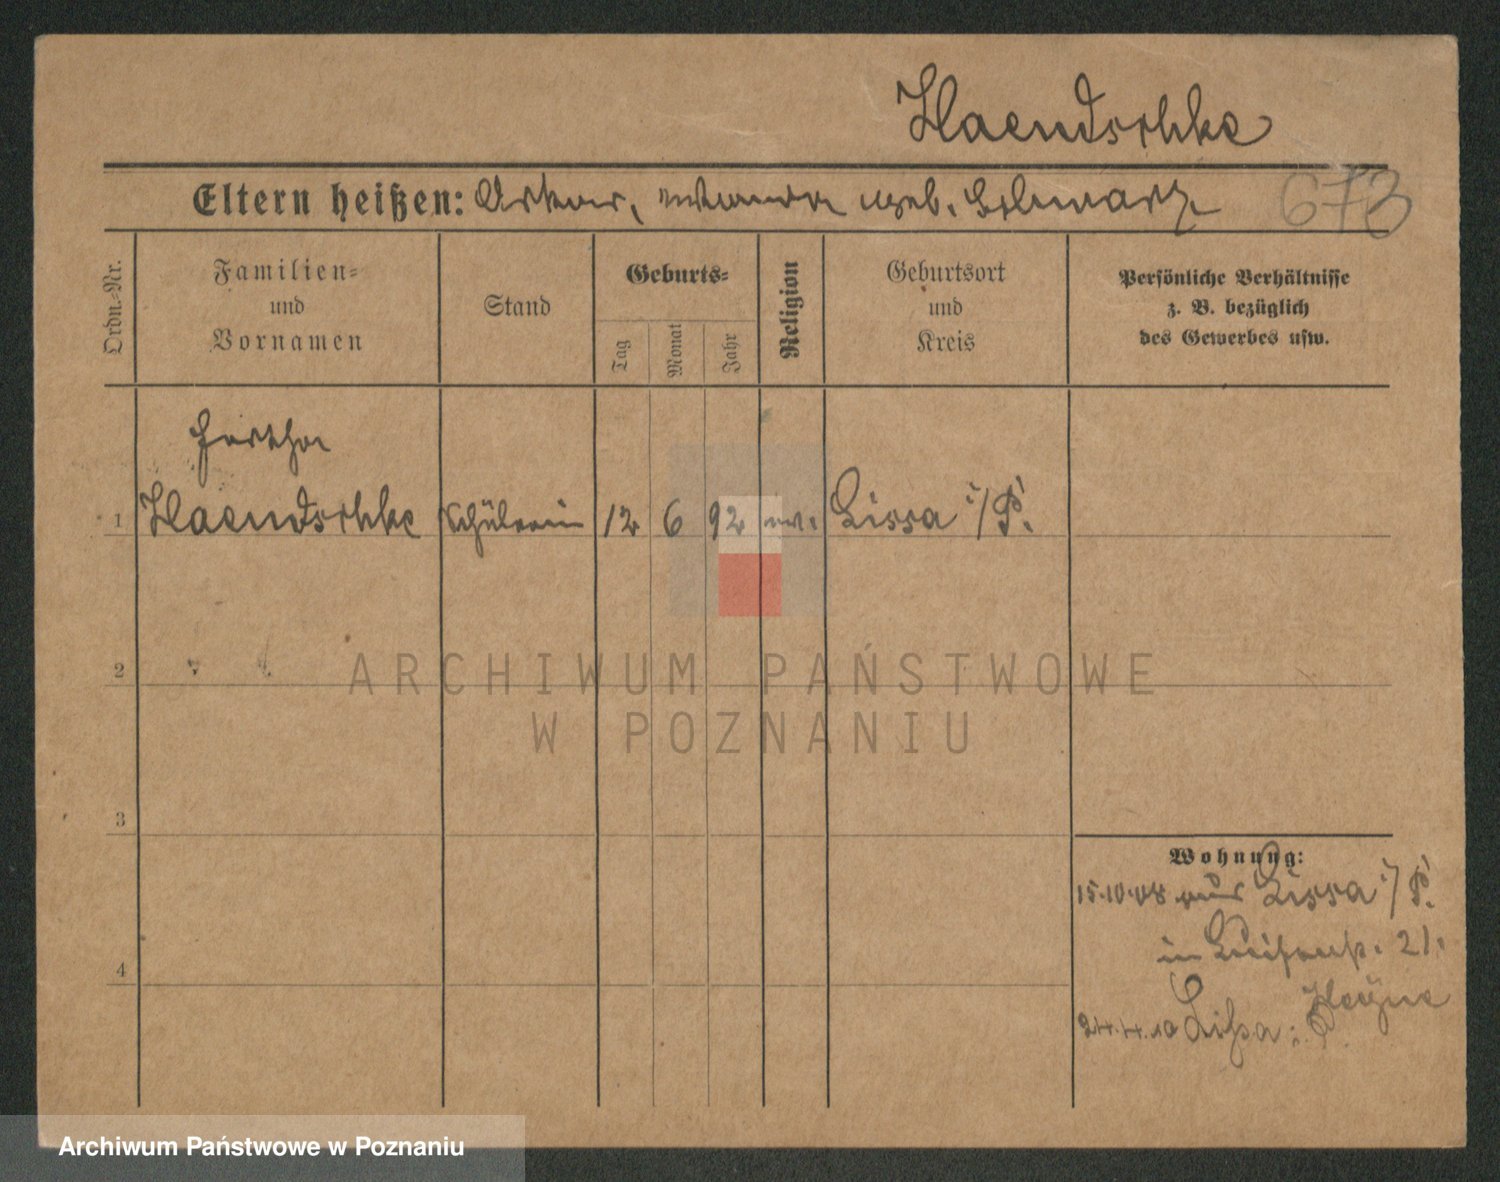 Haendschke
Eltern heißen: Artur, geb. Schwarz
673
Ordn.-Nr.
Familien-
und
Vornamen
Stand
Geburts-
Tag
Monat
Jahr
Religion
Geburtsort
und
Kreis
Persönliche Verhältnisse
z. B. bezüglich
des Gewerbes usw.
Hertha
1 Haendschke Schülerin 12 6 92 ev. Lissa i/P.
2
3
4
Wohnung:
15.10.08 aus Lissa i/P.
in Luisenst. 21.
Heyne
24.4.10 Lissa i. P.
ARCHIWUM PAŃSTWOWE
W POZNANIU
Archiwum Państwowe w Poznaniu